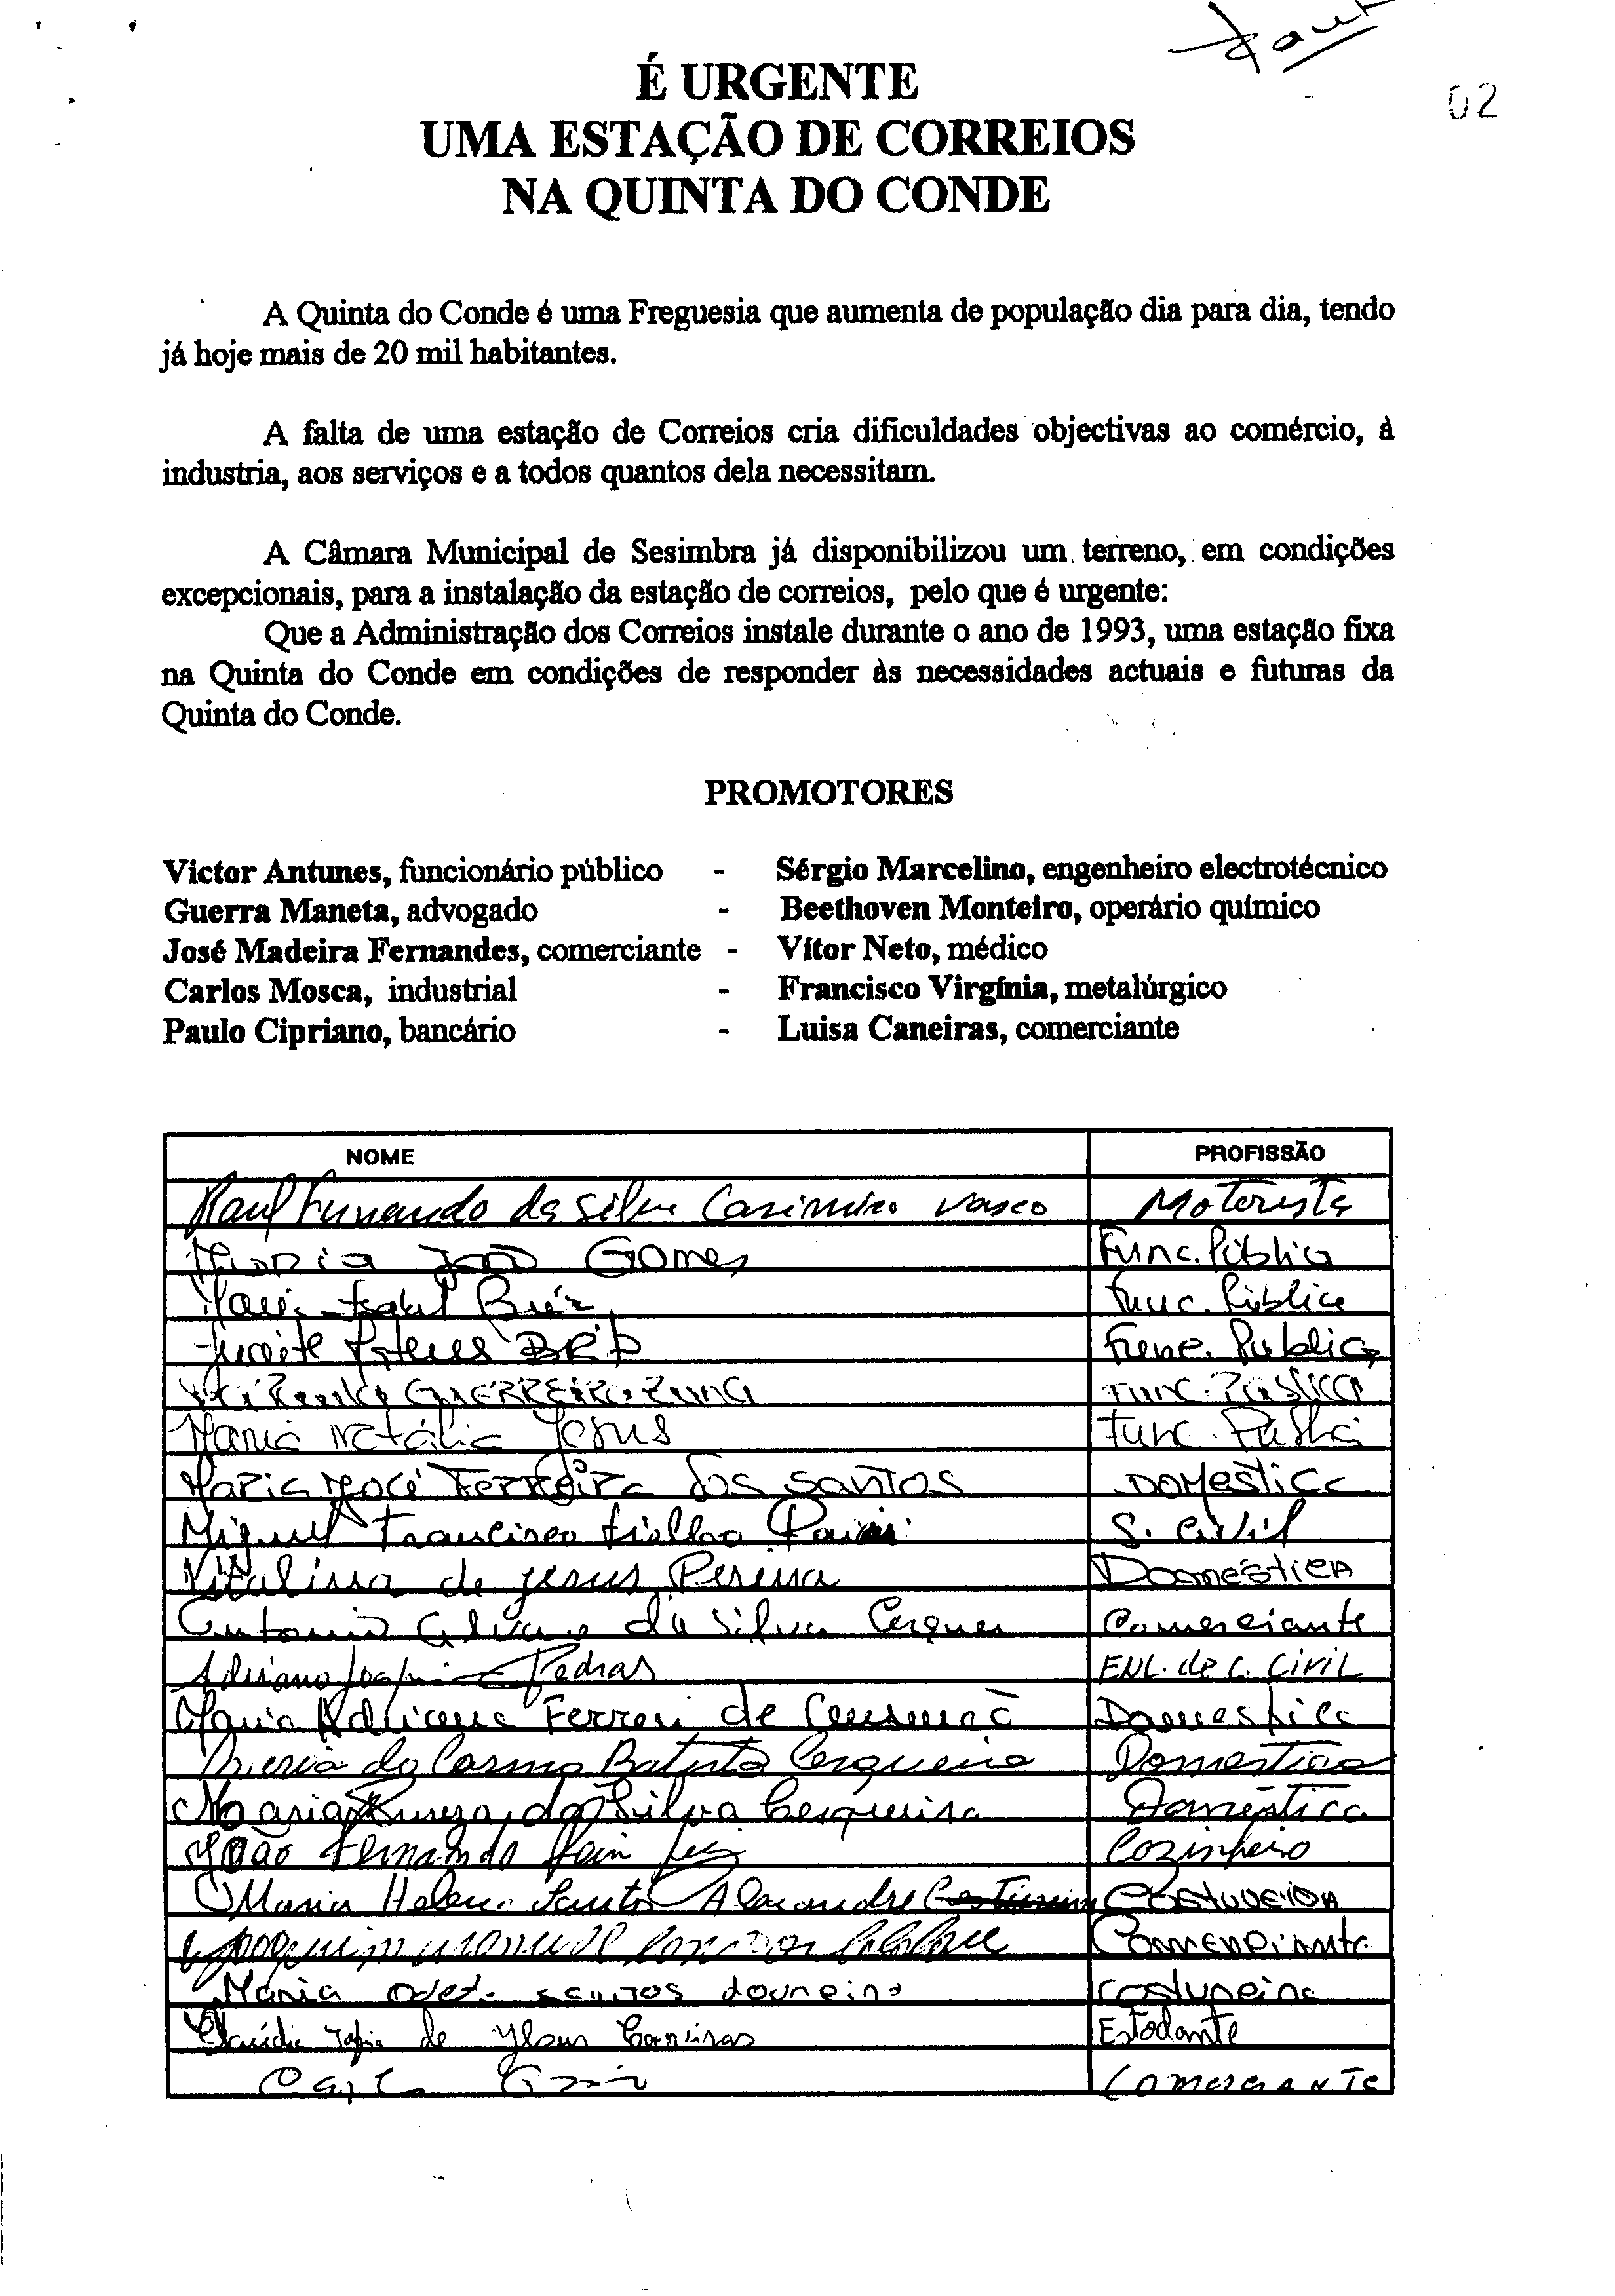 02
É URGENTE
UMA ESTAÇÃO DE CORREIOS
NA QUINTA DO CONDE
A Quinta do Conde é uma Freguesia que aumenta de população dia para dia, tendo
já hoje mais de 20 mil habitantes.
A falta de uma estação de Correios cria dificuldades objectivas ao comércio, à
industria, aos serviços e a todos quantos dela necessitam.
A Câmara Municipal de Sesimbra já disponibilizou um terreno, em condições
excepcionais, para a instalação da estação de correios, pelo que é urgente:
Que a Administração dos Correios instale durante o ano de 1993, uma estação fixa
na Quinta do Conde em condições de responder às necessidades actuais e futuras da
Quinta do Conde.
PROMOTORES
Victor Antunes, funcionário público - Sérgio Marcelino, engenheiro electrotécnico
Guerra Maneta, advogado - Beethoven Monteiro, operário químico
José Madeira Fernandes, comerciante - Vítor Neto, médico
Carlos Mosca, industrial - Francisco Virgínia, metalúrgico
Paulo Cipriano, bancário - Luisa Caneiras, comerciante
NOME PROFISSÃO
Raul Fernando da Silva Casimiro Vasco Motorista
Maria João Gomes Func. Pública
Maria Isabel Func. Pública
Func. Publica
GUERREIRO Func. Pública
Maria Natália Jesus Func.
Maria José Ferreira dos Santos Domestica
Miguel Francisco Fialho S. Civil
Vitalina de Jesus Pereira Doméstica
Antonio da Silva Comerciante
Adriano Pedras C. Civil
Maria Adriana de Domestica
Maria do Carmo Batista Cerqueira Domestica
Maria da Silva Cerqueira Doméstica
João Fernando Cozinheiro
Maria Helena Santos Alexandre Costureira
Joaquim Comerciante
Maria Odete Santos Loureiro Costureira
de Jesus Caneiras Estodante
Comerciante